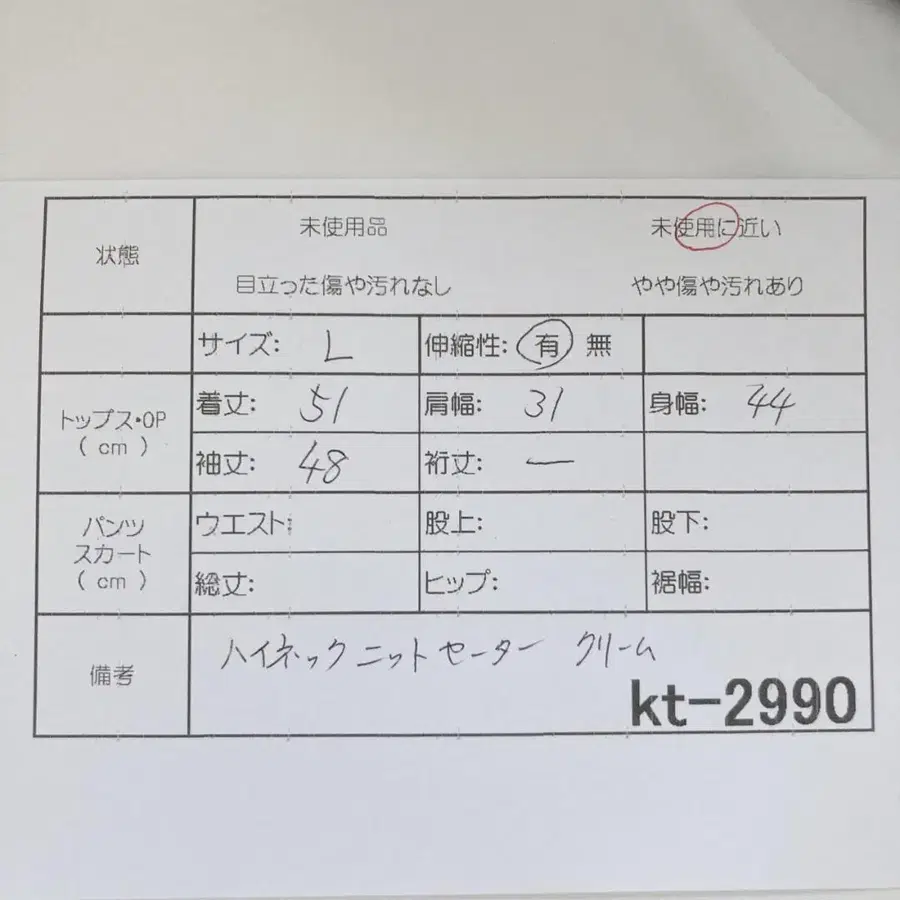 状態 未使用品 未使用に近い
目立った傷や汚れなし やや傷や汚れあり
サイズ: L 伸縮性: 有 無
トップス・OP
(cm)
着丈: 51 肩幅: 31 身幅: 44
袖丈: 48 裄丈: ー
パンツ
スカート
(cm)
ウエスト: 股上: 股下:
総丈: ヒップ: 裾幅:
備考
ハイネックニットセーター クリーム
kt-2990